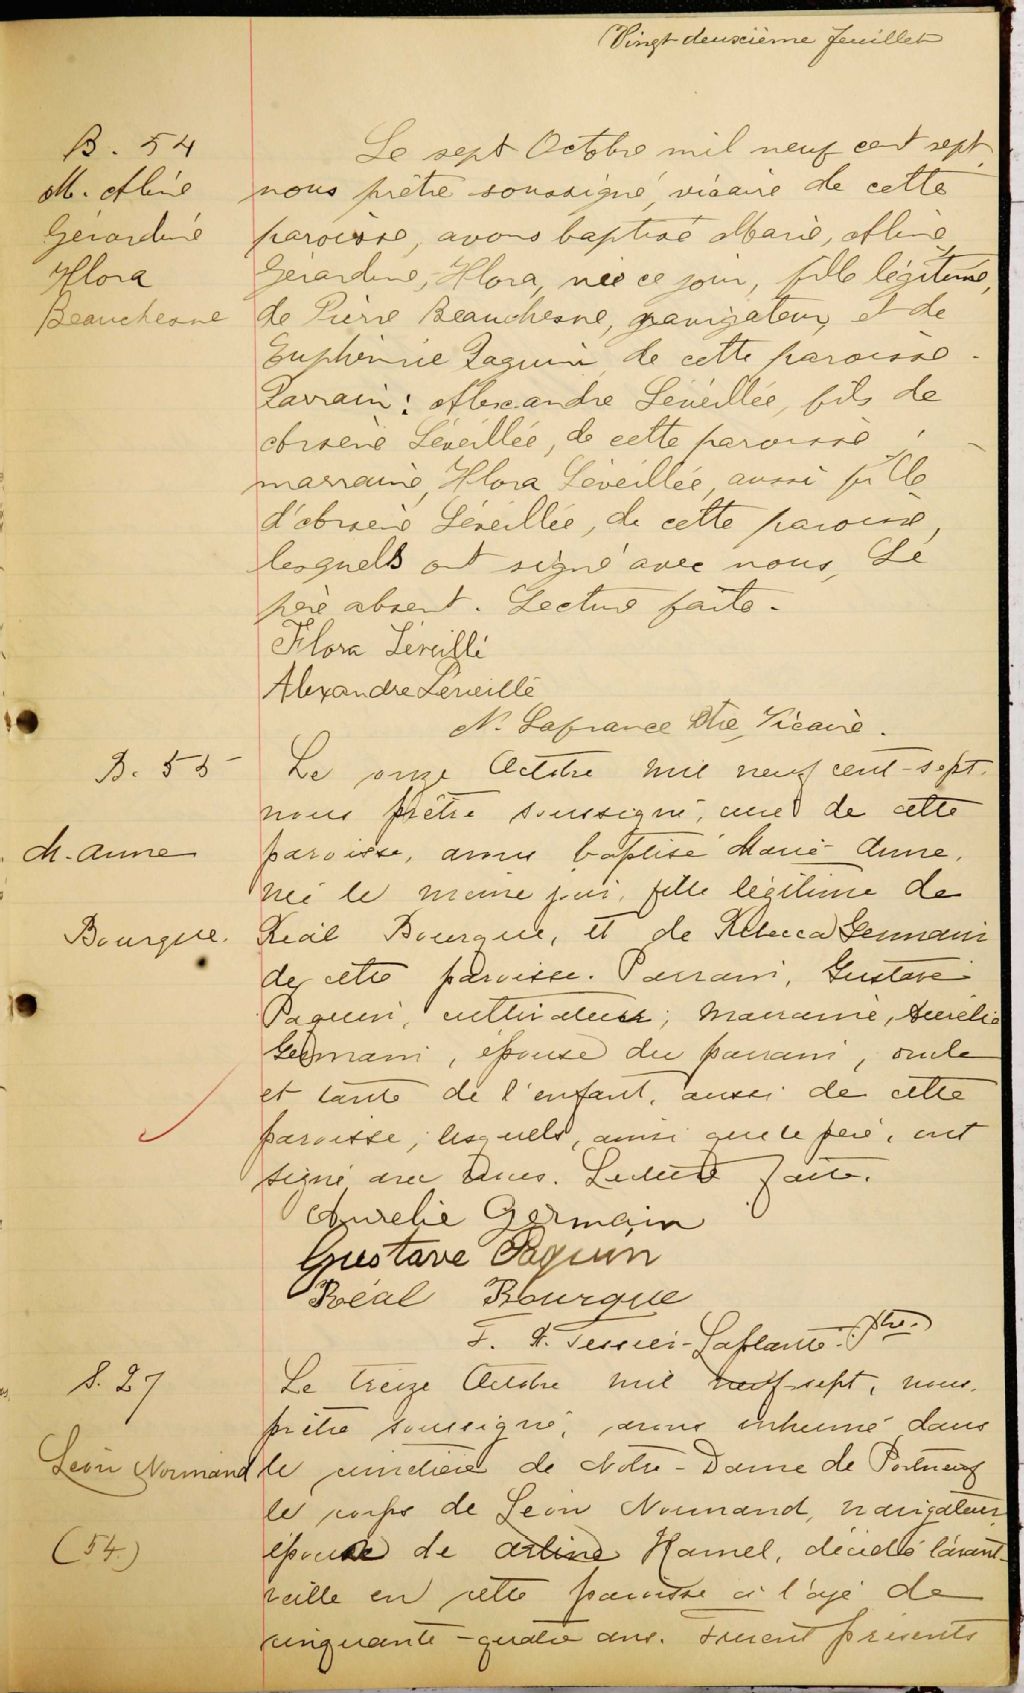 Vingt-deuxième feuillet
B. 54
M. Aline
Gérardine
Flora
Beauchesne
Le sept Octobre mil neuf cent sept
nous prêtre soussigné, vicaire de cette
paroisse, avons baptisé Marie, Aline
Gérardine, Flora, née ce jour, fille légitime,
de Pierre Beauchesne, navigateur, et de
Euphémie Paquin de cette paroisse.
Parrain : Alexandre Léveillée, fils de
Arsène Léveillée, de cette paroisse ;
marraine, Flora Léveillée, aussi fille
d'Arsène Léveillée, de cette paroisse,
lesquels ont signé avec nous, Le
père absent. Lecture faite.
Flora Léveillé
Alexandre Léveillé
N. Lafrance Ptre, Vicaire.
B. 55
M. Anne
Bourque.
Le onze Octobre mil neuf cent-sept.
nous prêtre soussigné, curé de cette
paroisse, avons baptisé Marie-Anne,
née le même jour, fille légitime de
Réal Bourque, et de Rébecca Germain
de cette paroisse. Parrain, Gustave
Paquin, cultivateur ; marraine, Aurélie
Germain, épouse du parrain, oncle
et tante de l'enfant, aussi de cette
paroisse ; lesquels, ainsi que le père, ont
signé avec nous. Lecture faite.
Aurelie Germain
Gustave Paquin
Réal Bourque
F. X. Tessier-Laplante. Ptre.
S. 27
Léon Normand
(54.)
Le treize Octobre mil neuf-sept, nous,
prêtre soussigné, avons inhumé dans
le cimetière de Notre-Dame de Portneuf
le corps de Léon Normand, navigateur,
époux de Arline Hamel, décédé l'avant-
veille en cette paroisse à l'âge de
cinquante-quatre ans. Furent présents